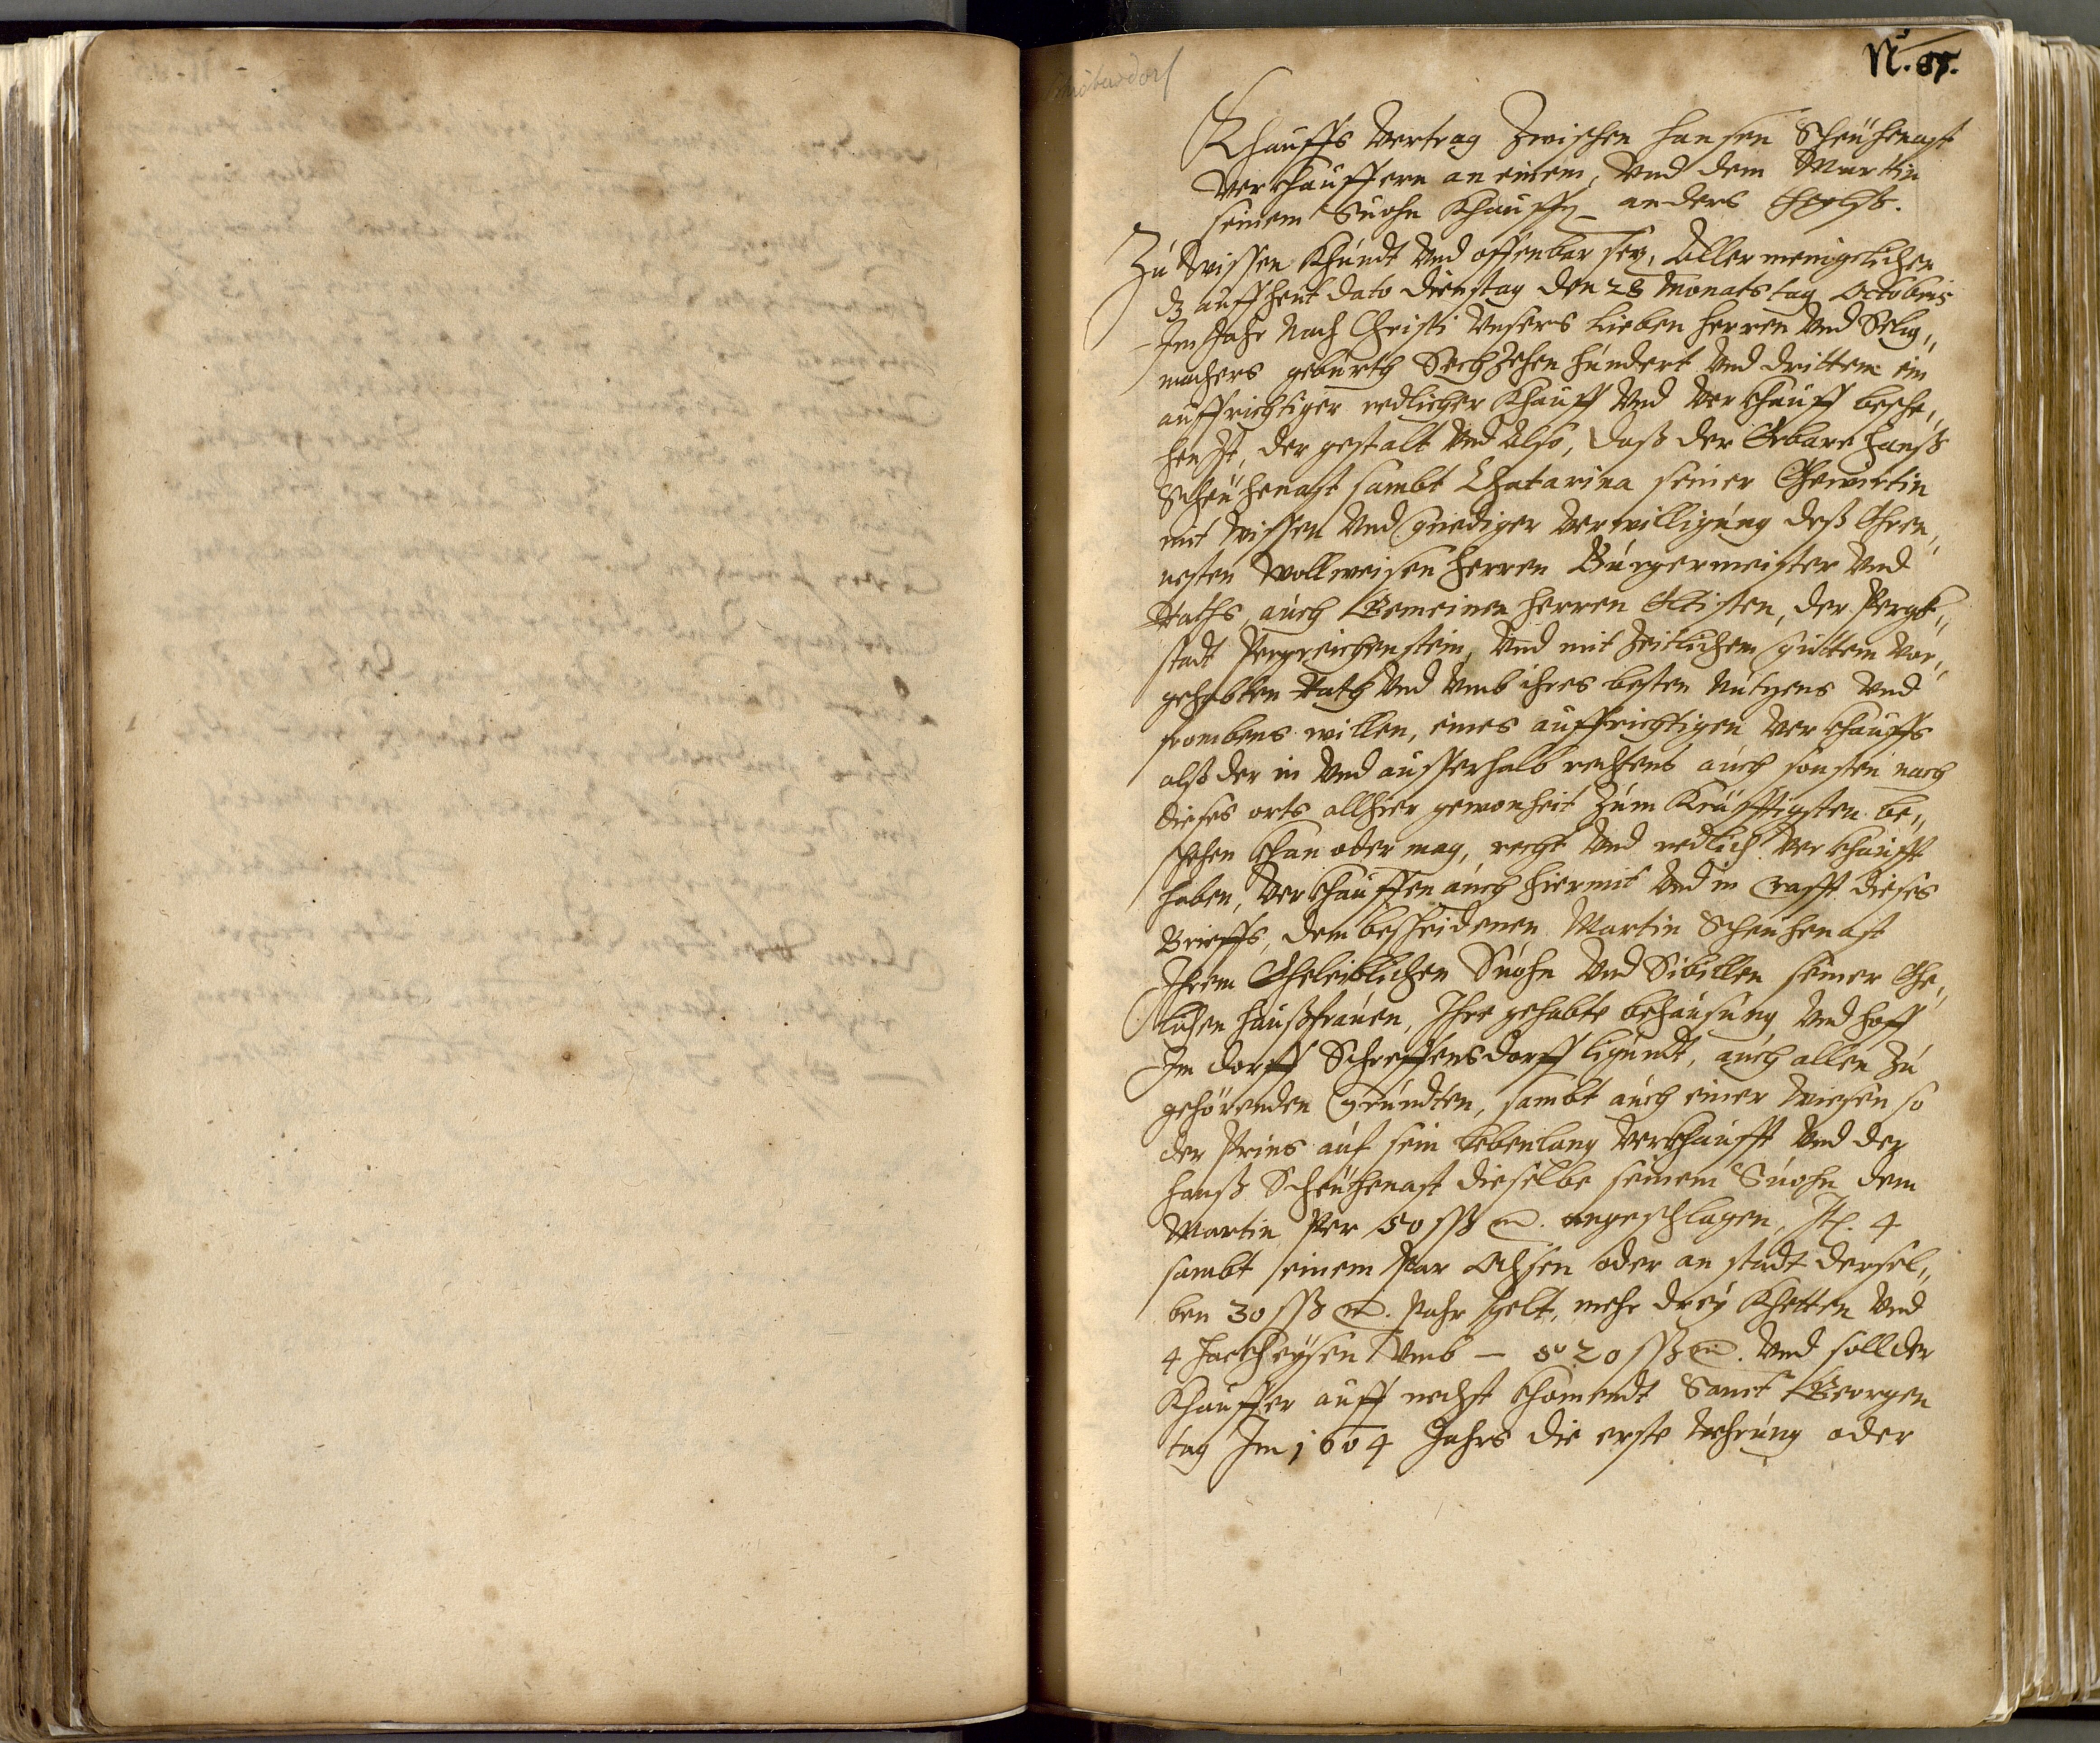 N. 87.
Khauffs Vertrag Zwischen Hansen Scheuhenast
Verkhauffern an einem, Vnd dem Martin
seinem Suohn Khauffer anders theylß.
Zu Wissen Khundt Vnd offenbar sey, Aller menigclichen
dz auff heut dato dienstag den 28 Monats tag Octobris
Im Jahr Nach Christi Vnsers Lieben Herren Vnd Selig„
machers geburth Sechzehen hundert Vnd dritten ein
auffrichtiger redlicher Khauff Vnd Verkhauff besche„
hen Ist, der gestalt Vnd Also, daß der Erbare Hanß
Scheuhenast sambt Chatarina seiner Ehewirtin
mit Wissen Vnd gnediger Verwilligung deß Ehren„
uesten Wollweisen Herren Burgermeister Vnd
Raths, auch Gemeinen Herren Eltisten, der Pergk„
stadt Pergreichenstein, Vnd mit Zeitlichem guttem Vor„
gehabten Rath Vnd Vmb ihres besten Nutzens Vnd
frombens willen, eines auffrichtigen Verkhauffs
alß der in Vnd ausserhalb rechtens auch sonsten nach
dieses orts allhier gewonheit Zum Kräfftigsten be„
schehen khan oder mag, recht Vnd redlich Verkhaufft
haben, Verkhauffen auch hiermit Vnd in Crafft dieses
Brieffs, dem bescheidenen Martin Scheuhenast
Ihrem Eheleiblichen Suohn Vnd Sibillen seiner Ehe„
lichen Haußfrauen, Ihre gehabte behausung Vnd hoff
Im dorff Schreffensdorff ligundt, auch allen Zu
gehörenden Gründten, sambt auch einer Wiesen so
der Prins auf sein Lebenlang Verkhaufft Vnd der
Hanß Scheuhenast dieselbe seinem Suohn dem
Martin Per 50 ßß m. angeschlagen, It. 4
sambt einem Par Ochsen oder an stadt dersel„
ben 30 ßß m. Pahr Gelt, mehr drey Khetten Vnd
4 Hackheysen Vmb — 20 ßß m. Vnd soll der
Khauffer auff nechst khomendt Sanct Georgen
tag Im 1604 Jahrs die erste Wehrung oder